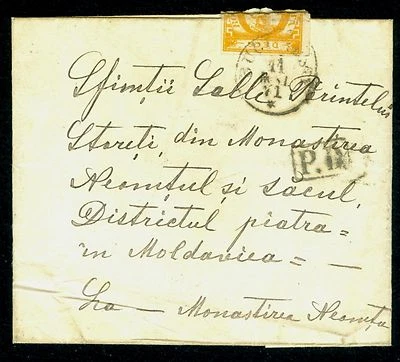 11
71
Sfințiĭ Salle Părintelui
Stareți, din Monastirea
Neamțul, și Sacul,
P.D.
Districtul piatra =
în Moldaviea = —
La — Monastirea Neamțu